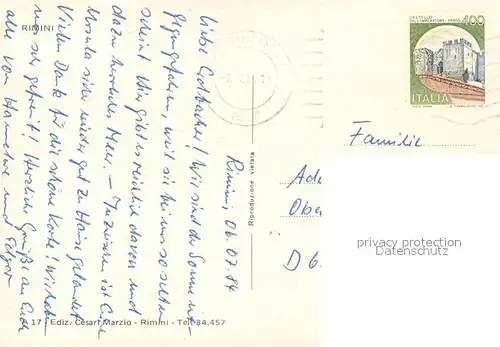 RIMINI
Rimini, 06.07.84
Liebe Erdbacher! Wir sind der Sonne ent-
gegengefahren, weil sie bei uns so selten
scheint. Hier gibt es reichlich davon und
dazu herrliches Meer. – Inzwischen ist Eure
Ursula sicher wieder gut zu Hause gelandet.
Vielen Dank für die schöne Karte! Wir haben
uns sehr gefreut! Herzliche Grüße an Euch
alle von Hannelore und Edgar
17 - Ediz. Cesari Marzio - Rimini - Tel. 84.457
Riproduzione vietata
CASTELLO
DELL'IMPERATORE - PRATO
400
ITALIA
Familie
Ade
Obe
D 6
privacy protection
Datenschutz